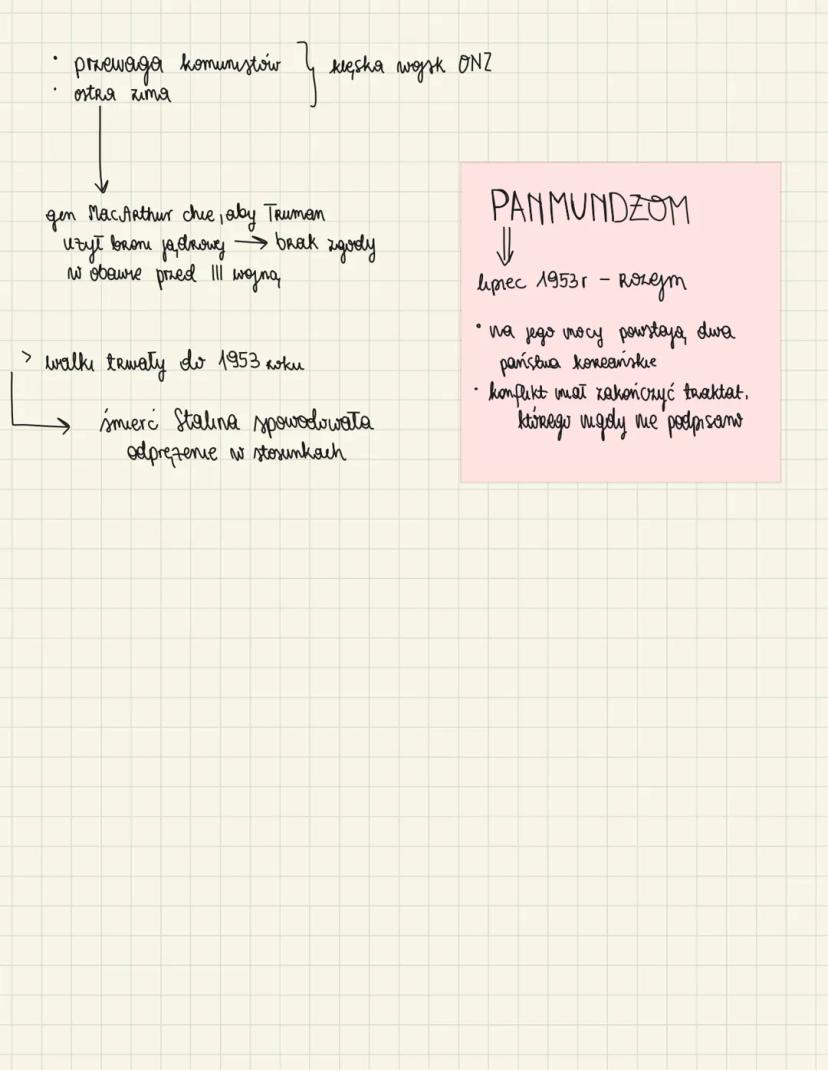 • przewaga komunistów } klęska wojsk ONZ
• ostra zima
gen MacArthur chce, aby Truman
użył broni jądrowej → brak zgody
w obawie przed III wojną
> walki trwały do 1953 roku
śmierć Stalina spowodowała
odprężenie w stosunkach
PANMUNDŻOM
lipiec 1953r – rozejm
• na jego mocy powstają dwa
państwa koreańskie
• konflikt miał zakończyć traktat,
którego nigdy nie podpisano